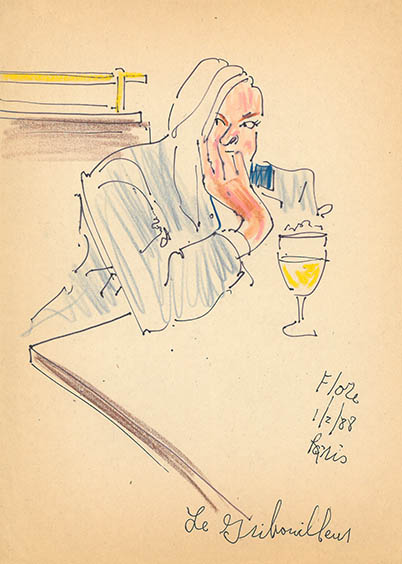 Flore
1/2/88
Paris
Le Gribouilleur